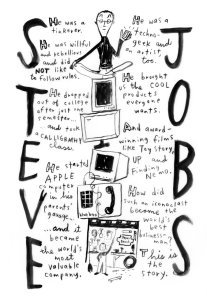 STEVE
JOBS
He was a
tinkerer.
He was willful
and rebellious
and did
NOT like
to follow rules.
He dropped
out of college
after just one
semester...
and took
a CALLIGRAPHY
class.
He started
APPLE
computer
in his
parents'
garage,
...and it
became
the world's
most
valuable
company.
He was a
techno-
geek and
an artist
too.
He brought
us the COOL
products
everyone
wants.
And award-
winning films
like Toy Story,
UP and
Finding
Nemo.
How did
such an iconoclast
become the
world's
best
business-
man?
This is
the
story.